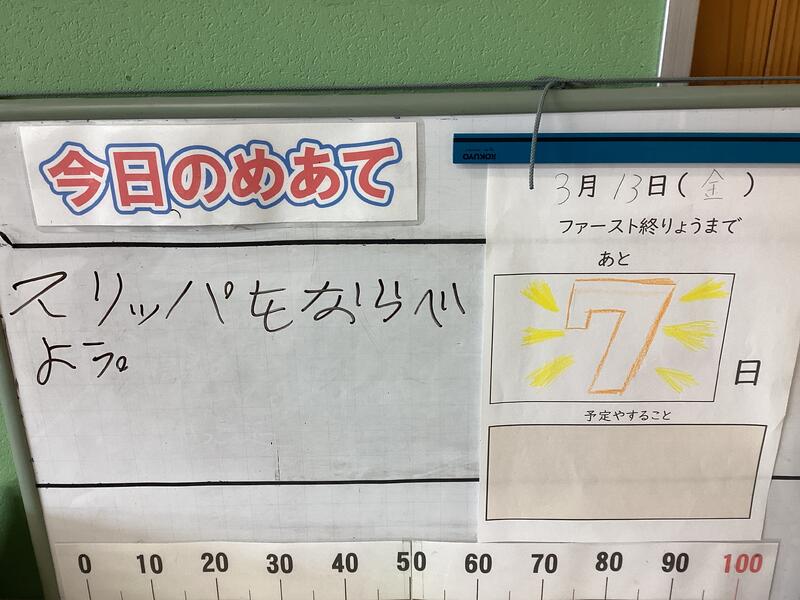 今日のめあて
スリッパをならべ
よう。
KOKUYO
3月13日(金)
ファースト終りょうまで
あと
7
日
予定やすること
0 10 20 30 40 50 60 70 80 90 100